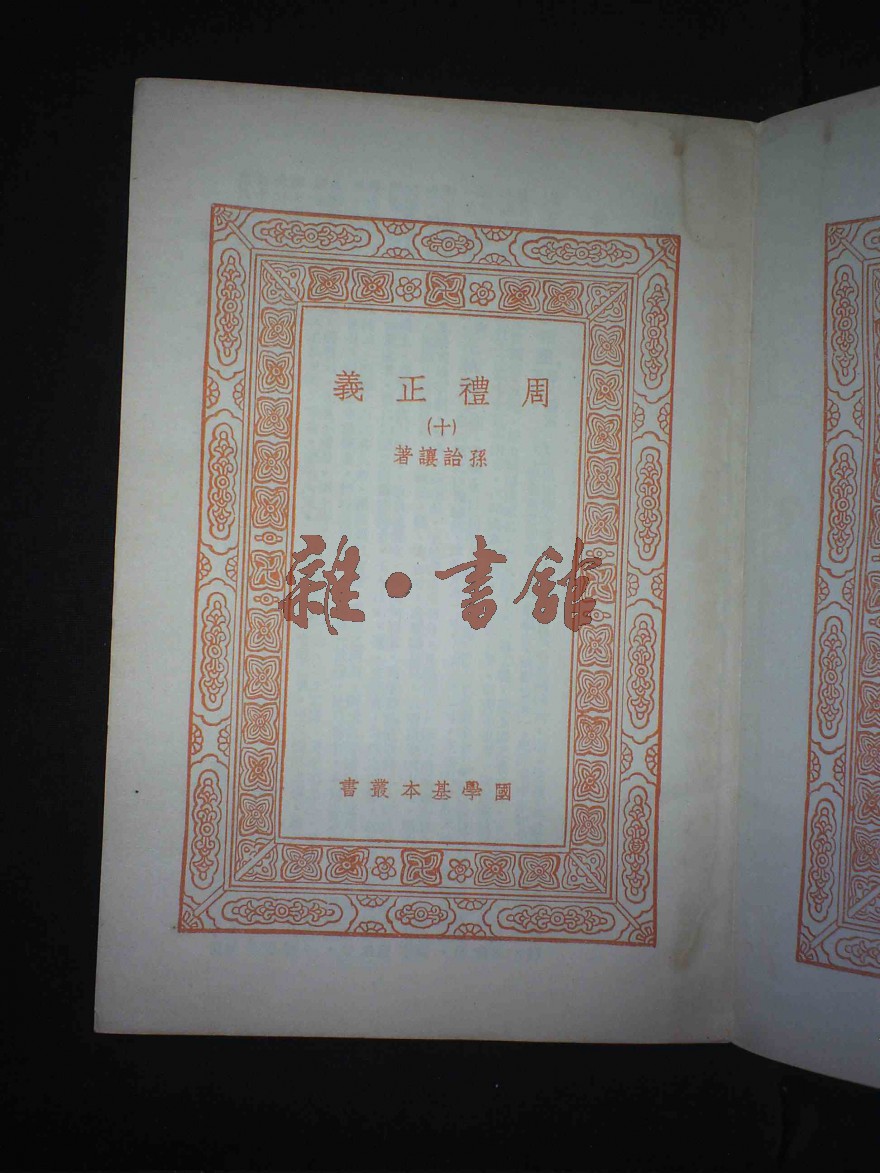 周禮正義
(十)
孫詒讓著
雜·書館
國學基本叢書